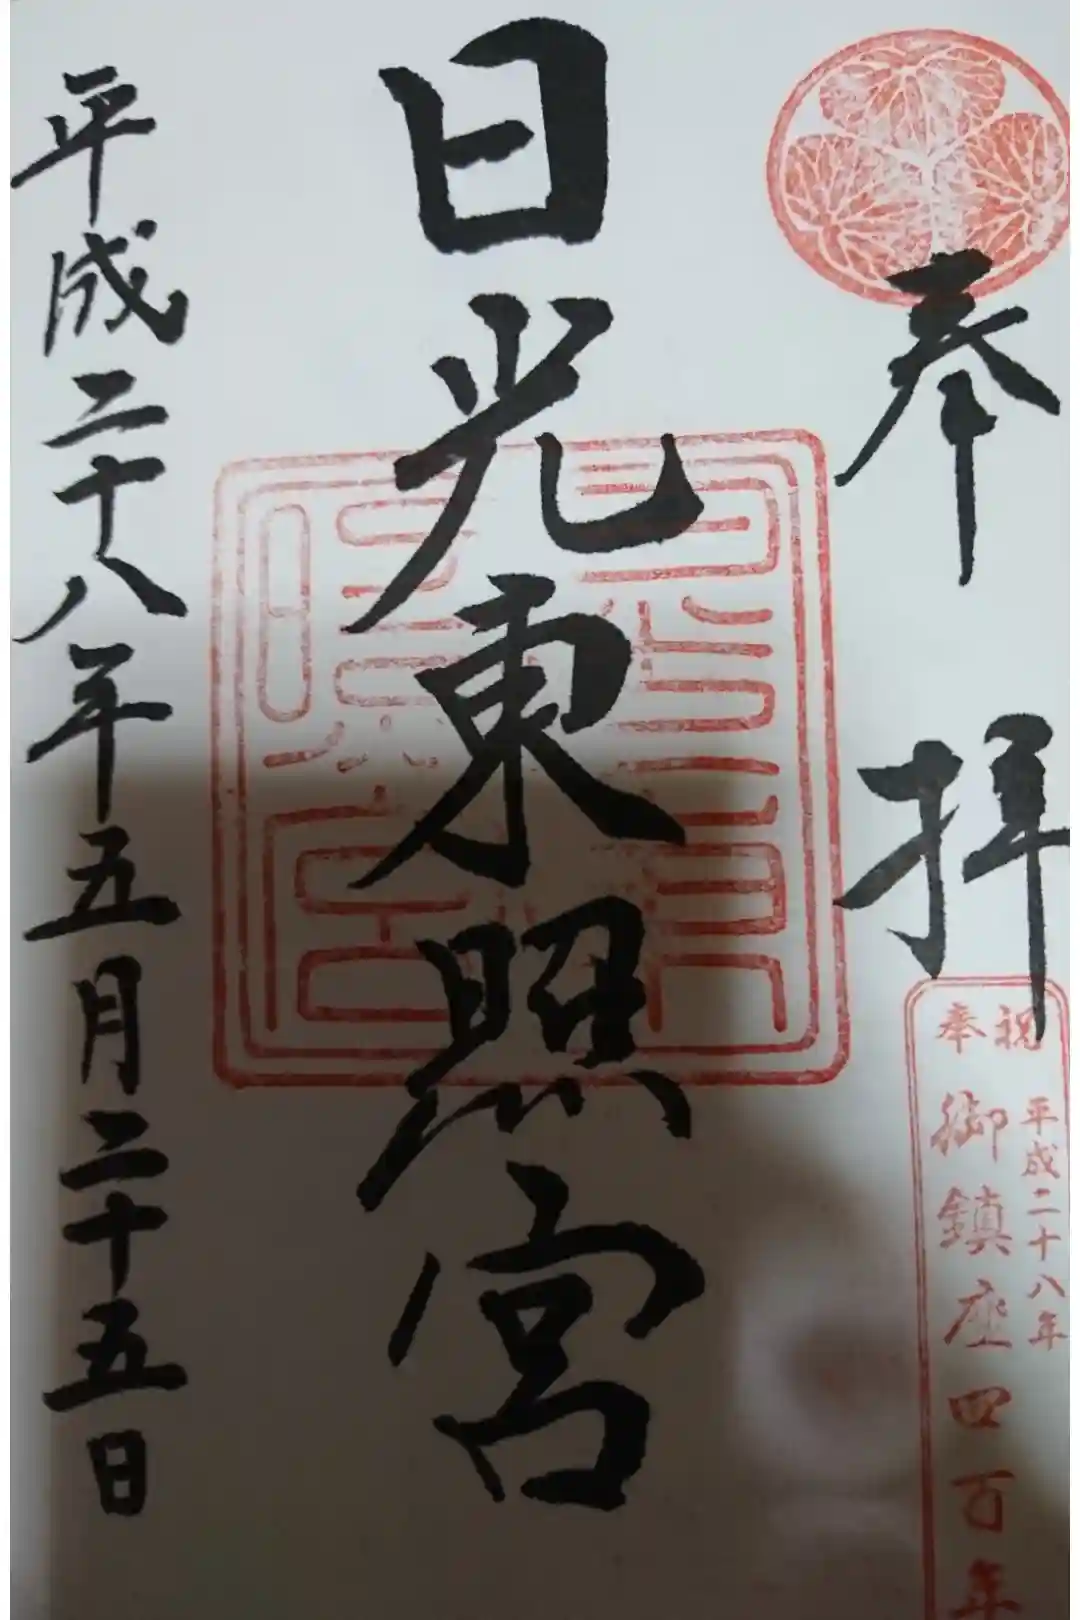 奉拝
祝 平成二十八年
奉 御鎮座四百年
日光東照宮
平成二十八年五月二十五日